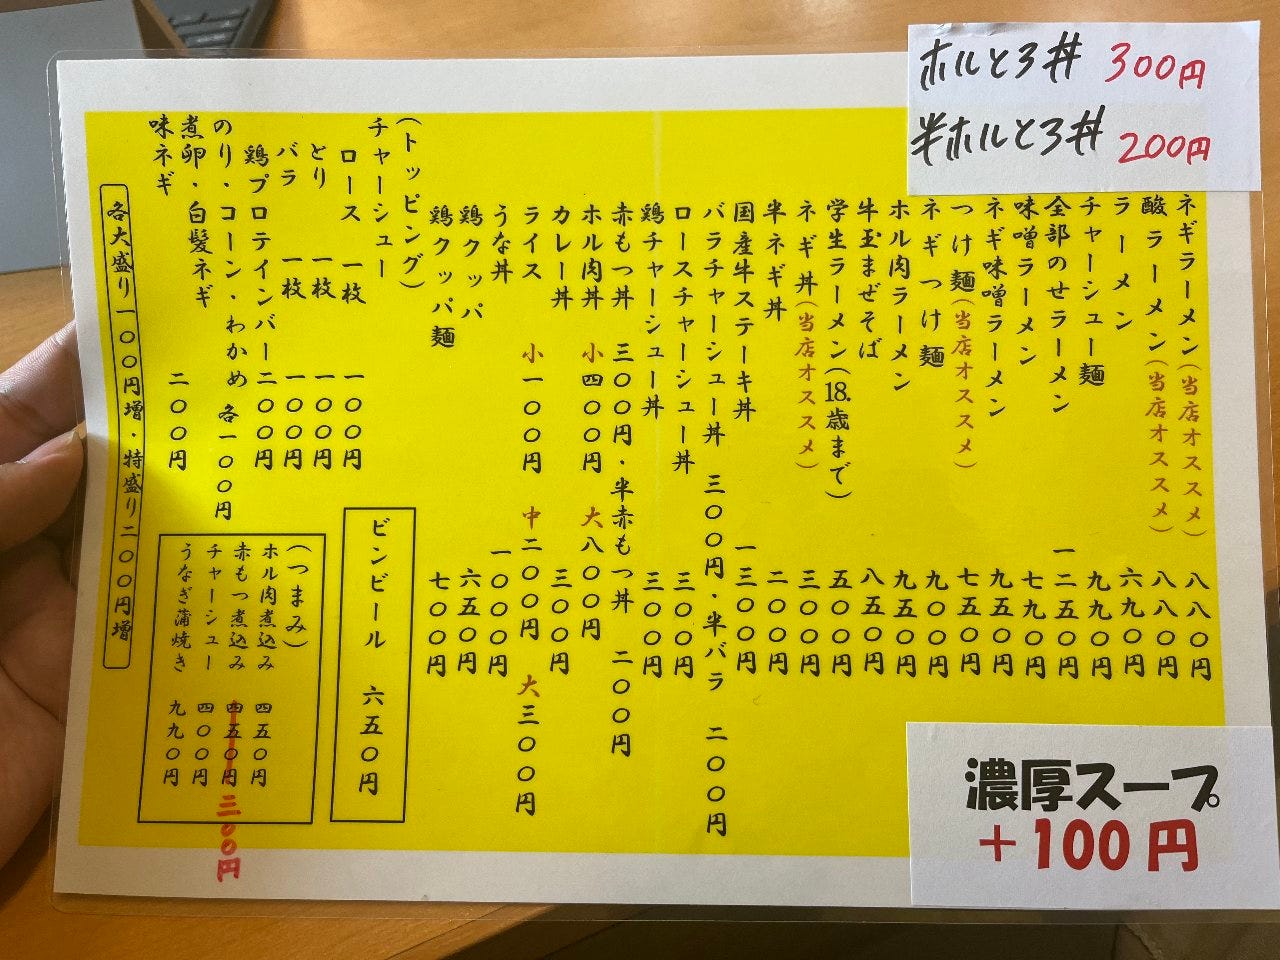 ホルとろ丼 300円
半ホルとろ丼 200円
ネギラーメン(当店オススメ) 八八〇円
酸ラーメン(当店オススメ) 八八〇円
ラーメン 六九〇円
チャーシュー麺 九九〇円
全部のせラーメン 一二五〇円
味噌ラーメン 七九〇円
ネギ味噌ラーメン 九五〇円
つけ麺(当店オススメ) 七五〇円
ネギつけ麺 九〇〇円
ホル肉ラーメン 九五〇円
牛玉まぜそば 八五〇円
学生ラーメン(18.歳まで) 五〇〇円
ネギ丼(当店オススメ) 三〇〇円
半ネギ丼 二〇〇円
国産牛ステーキ丼 一三〇〇円
バラチャーシュー丼 三〇〇円・半バラ 二〇〇円
ロースチャーシュー丼 三〇〇円
鶏チャーシュー丼 三〇〇円
赤もつ丼 三〇〇円・半赤もつ丼 二〇〇円
ホル肉丼 小四〇〇円 大八〇〇円
カレー丼 三〇〇円
ライス 小一〇〇円 中二〇〇円 大三〇〇円
うな丼 一〇〇〇円
鶏クッパ 六五〇円
鶏クッパ麺 七〇〇円
(トッピング)
チャーシュー
ロース 一枚 一〇〇円
とり 一枚 一〇〇円
バラ 一枚 一〇〇円
鶏プロテインバー 二〇〇円
のり・コーン・わかめ 各一〇〇円
煮卵・白髪ネギ
味ネギ 二〇〇円
各大盛り一〇〇円増・特盛り二〇〇円増
ビンビール 六五〇円
(つまみ)
ホル肉煮込み 四五〇円
赤もつ煮込み 四五〇円 三〇〇円
チャーシュー 四〇〇円
うなぎ蒲焼き 九九〇円
濃厚スープ
+100円